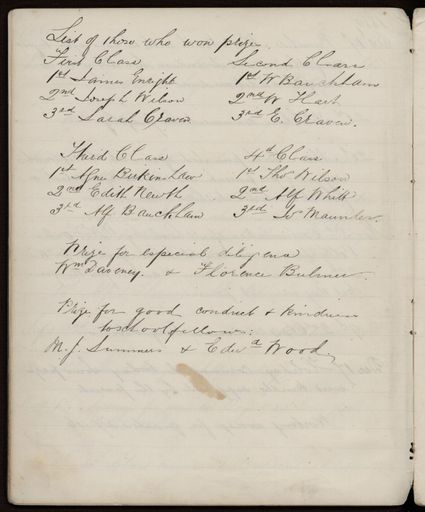 List of those who won prizes
First Class Second Class
1st James Enright 1st W Bauckham
2nd Joseph Wilson 2nd W Hart
3rd Sarah Craven 3rd E. Craven.
Third Class 4th Class
1st Agnes Birkenshaw 1st Thos Wilson
2nd Edith Newth 2nd Alf White
3rd Alf Bauckham 3rd Jos Maunder
Prize for especial diligence
Wm Daveney. & Florence Bulmer
Prize for good conduct & kindness
to schoolfellows:
M. J. Summers & Edwd Wood